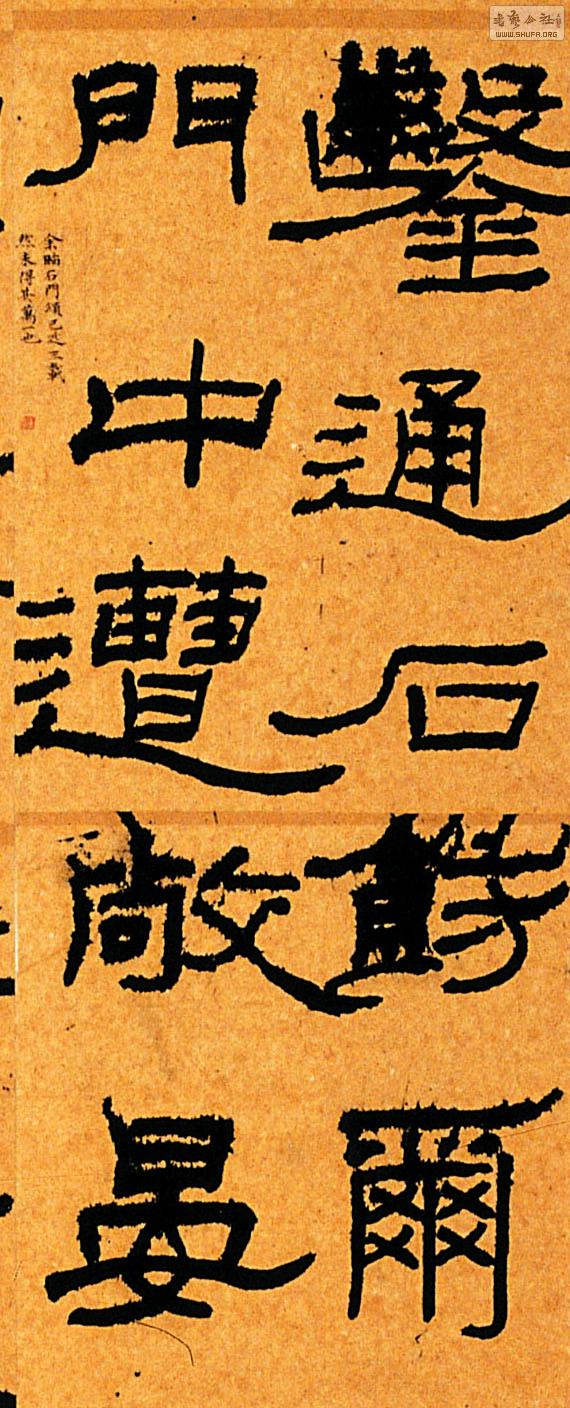 鑿通石
門中遭
余臨石門頌已近三載
然未得其萬一也
爾
敞晏
書藝公社
WWW.SHUFA.ORG